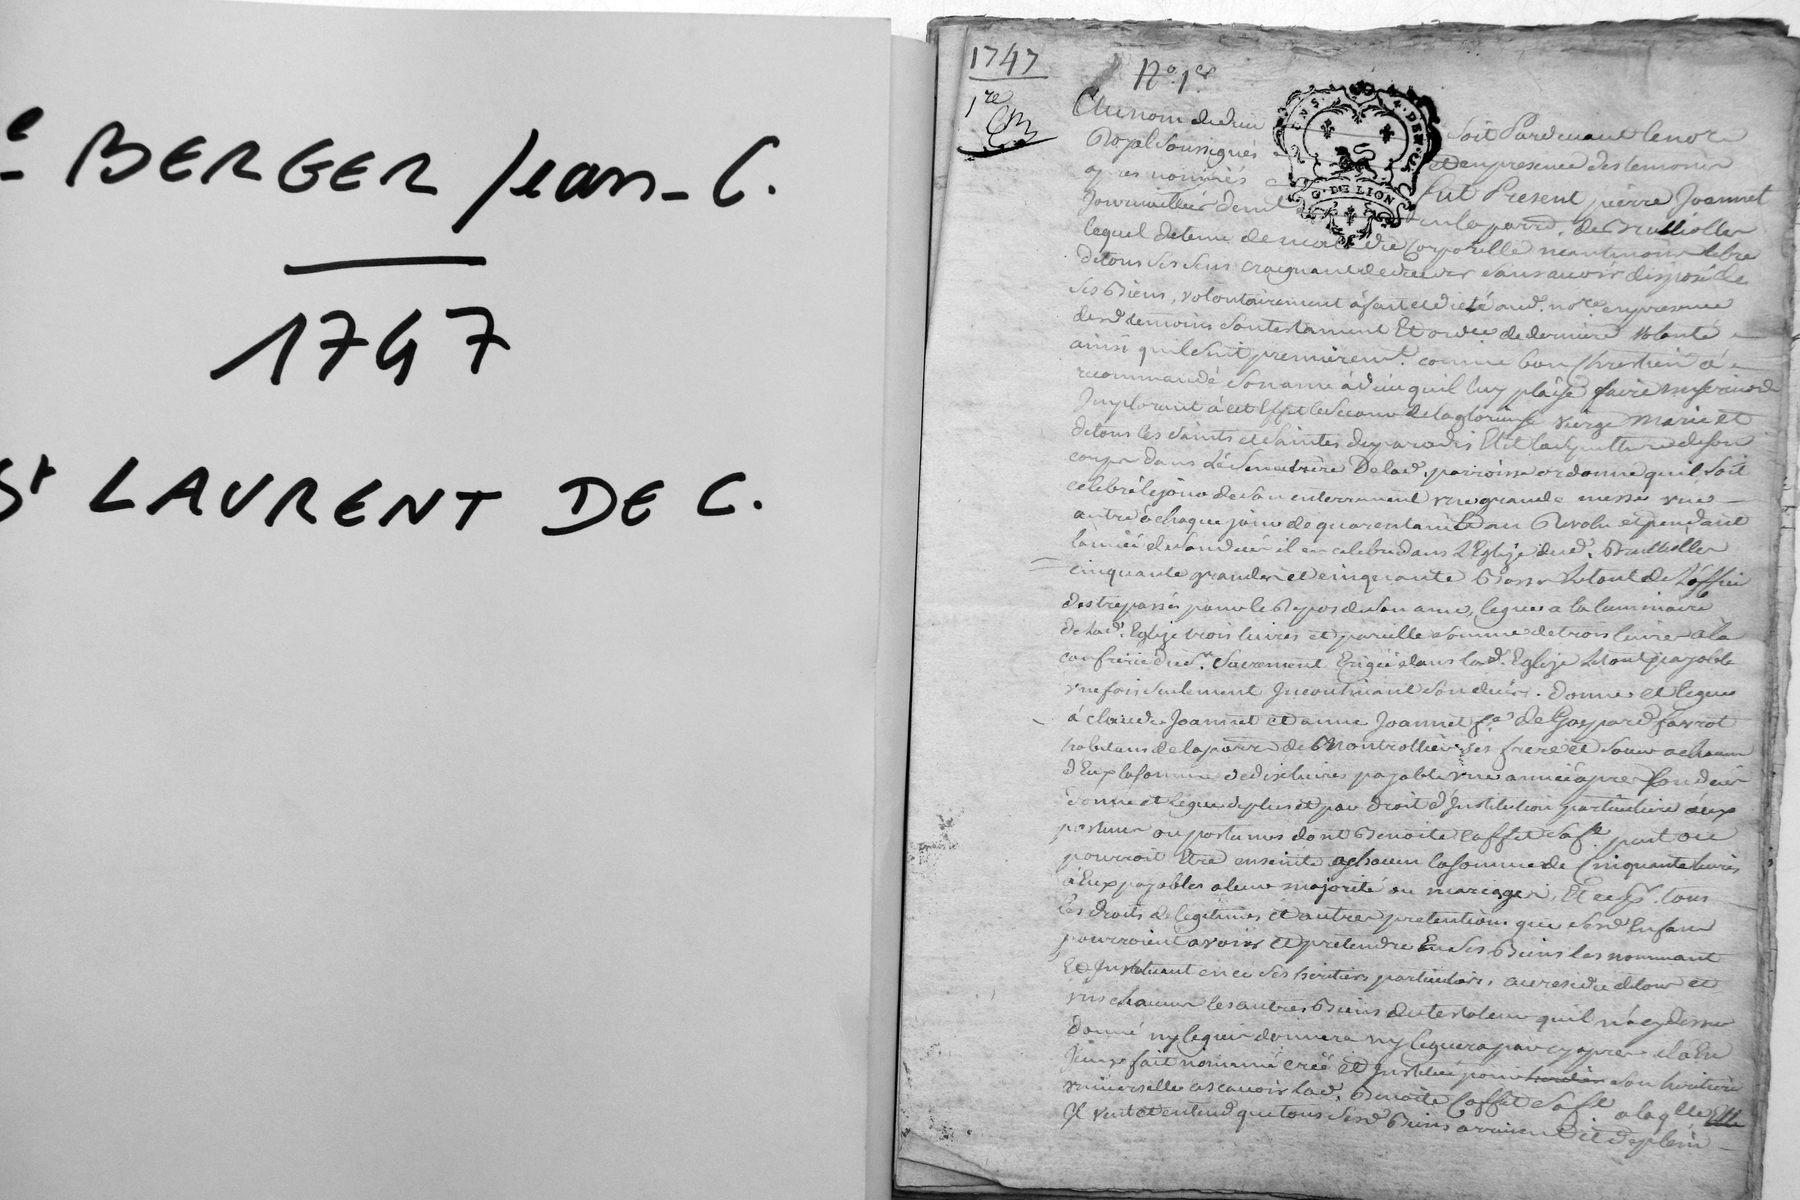 e BERGER Jean-C.
1747
St LAURENT DE C.
1747
No. 1er
1re
G. DE LION
Au nom de dieu soit Pardevant le nore
Royal soussignés et en presence des temoins
apres nommés fut Present pierre Joannet
Journaillier demt en la parre. de Brullioller
lequel detenu de maladie corporelle neantmoins libre
de tous ses sens craignant de deceder sans avoir disposé de
ses Biens, volontairement à fait et dicté aud. nore. en presence
desd temoins son testament Et ordce de derniere volonté
ainsi quil suit premieremt. comme bon Chrestien à
recommandé son ame à dieu quil luy plaise faire misericorde
Implorant à cet Effet le secours de la glorieuse vierge Marie et
de tous les saints et saintes du paradis Et la sepulture de son
corps dans Le Semetière De lad. parroisse ordonne quil soit
celebré le jour de son enterrement une grande messe une
autre à chaque jour de quarentaine et an Revolu et pendant
lannée de son deces il en celebré dans L'Eglise dud. Brullioller
cinquante grandes et cinquante Basses Le tout de L'office
des trepassés pour le Repos de son ame, legue a la luminaire
de lad. Eglise trois livres et pareille somme de trois livres à la
confrerie du st. Sacrement Erigée dans lad. Eglise Le tout payable
une fois seulement Incontinant son deces. donne et legue
à claude Joannet et anne Joannet fe. de Gaspard favrot
habitans de la parre de Montrottier ses frere et soeur a chacun
d'Eux la somme de dix livres payable une année apres son deces
donne et legue de plus et par droit d'Institution particuliere aux
postume ou postumes dont Benoite Caffet sa fe. peut ou
pourroit être enseinte a chacun la somme de Cinquante livres
à Eux payables a leur majorité ou mariage, Et ce pr. tous
les droits de legitimes et autres pretentions que sesd Enfans
pourroient avoir et pretendre En ses Biens les nommant
Et Instituant en ce ses heritiers particuliers, au residu de tous et
uns chacuns les autres Biens du testateur quil n'a cy dessus
donné ny legué donnera ny leguera par cy apres il a En
Iceux fait nommé créé et Institué pour son heritiere
universelle a scavoir lad. Benoite Caffet sa fe. a laqlle
Il veut et entend que tous sesd Biens arrivent Et de plein